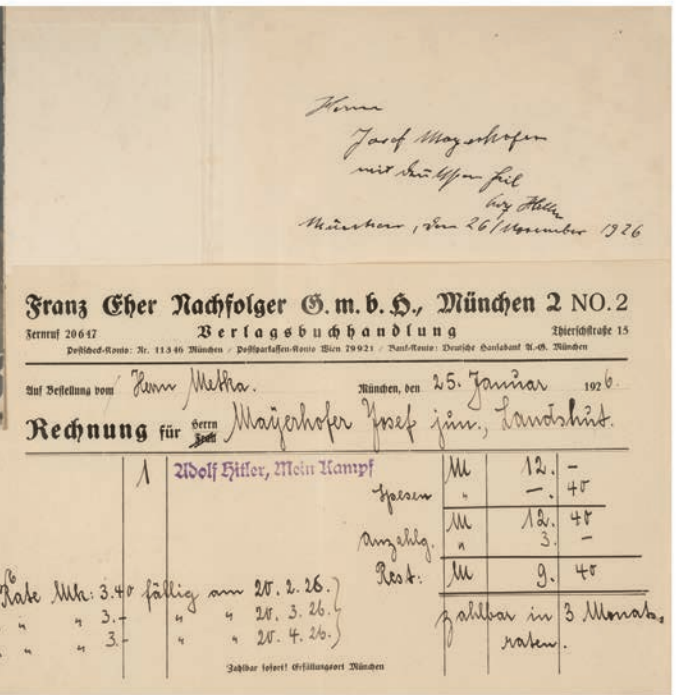 Herrn
Josef Mayerhofer
mit deutschem Heil
München, den 26/November 1926
Franz Eher Nachfolger G. m. b. H., München 2 NO. 2
Fernruf 20647 Verlagsbuchhandlung Thierschstraße 15
Postscheck-Konto: Nr. 11346 München / Postsparkassen-Konto Wien 79921 / Bank-Konto: Deutsche Hansabank A.-G. München
Auf Bestellung vom Herrn Metka. München, den 25. Januar 1926.
Rechnung für Herrn Frau Mayerhofer Josef jun., Landshut.
1 Adolf Hitler, Mein Kampf M 12. -
Spesen " -. 40
M 12. 40
Anzahlg. " 3. -
Rest: M 9. 40
Rate Mk: 3.40 fällig am 20. 2. 26.
" " 3.- " " 20. 3. 26.
" " 3.- " " 20. 4. 26.
zahlbar in 3 Monats-
raten.
Zahlbar sofort! Erfüllungsort München